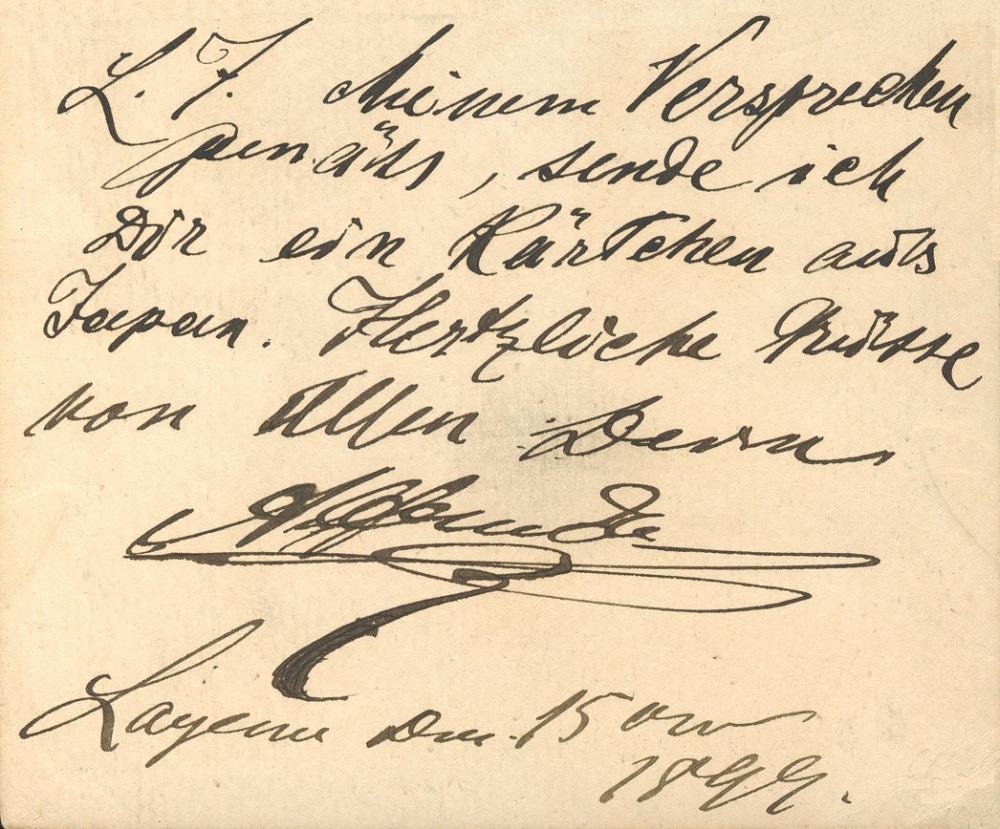 L. F. Meinem Versprechen
gemäss, sende ich
Dir ein Kärtchen aus
Japan. Hertzliche Grüsse
von Allen Dein
den 15
1899.